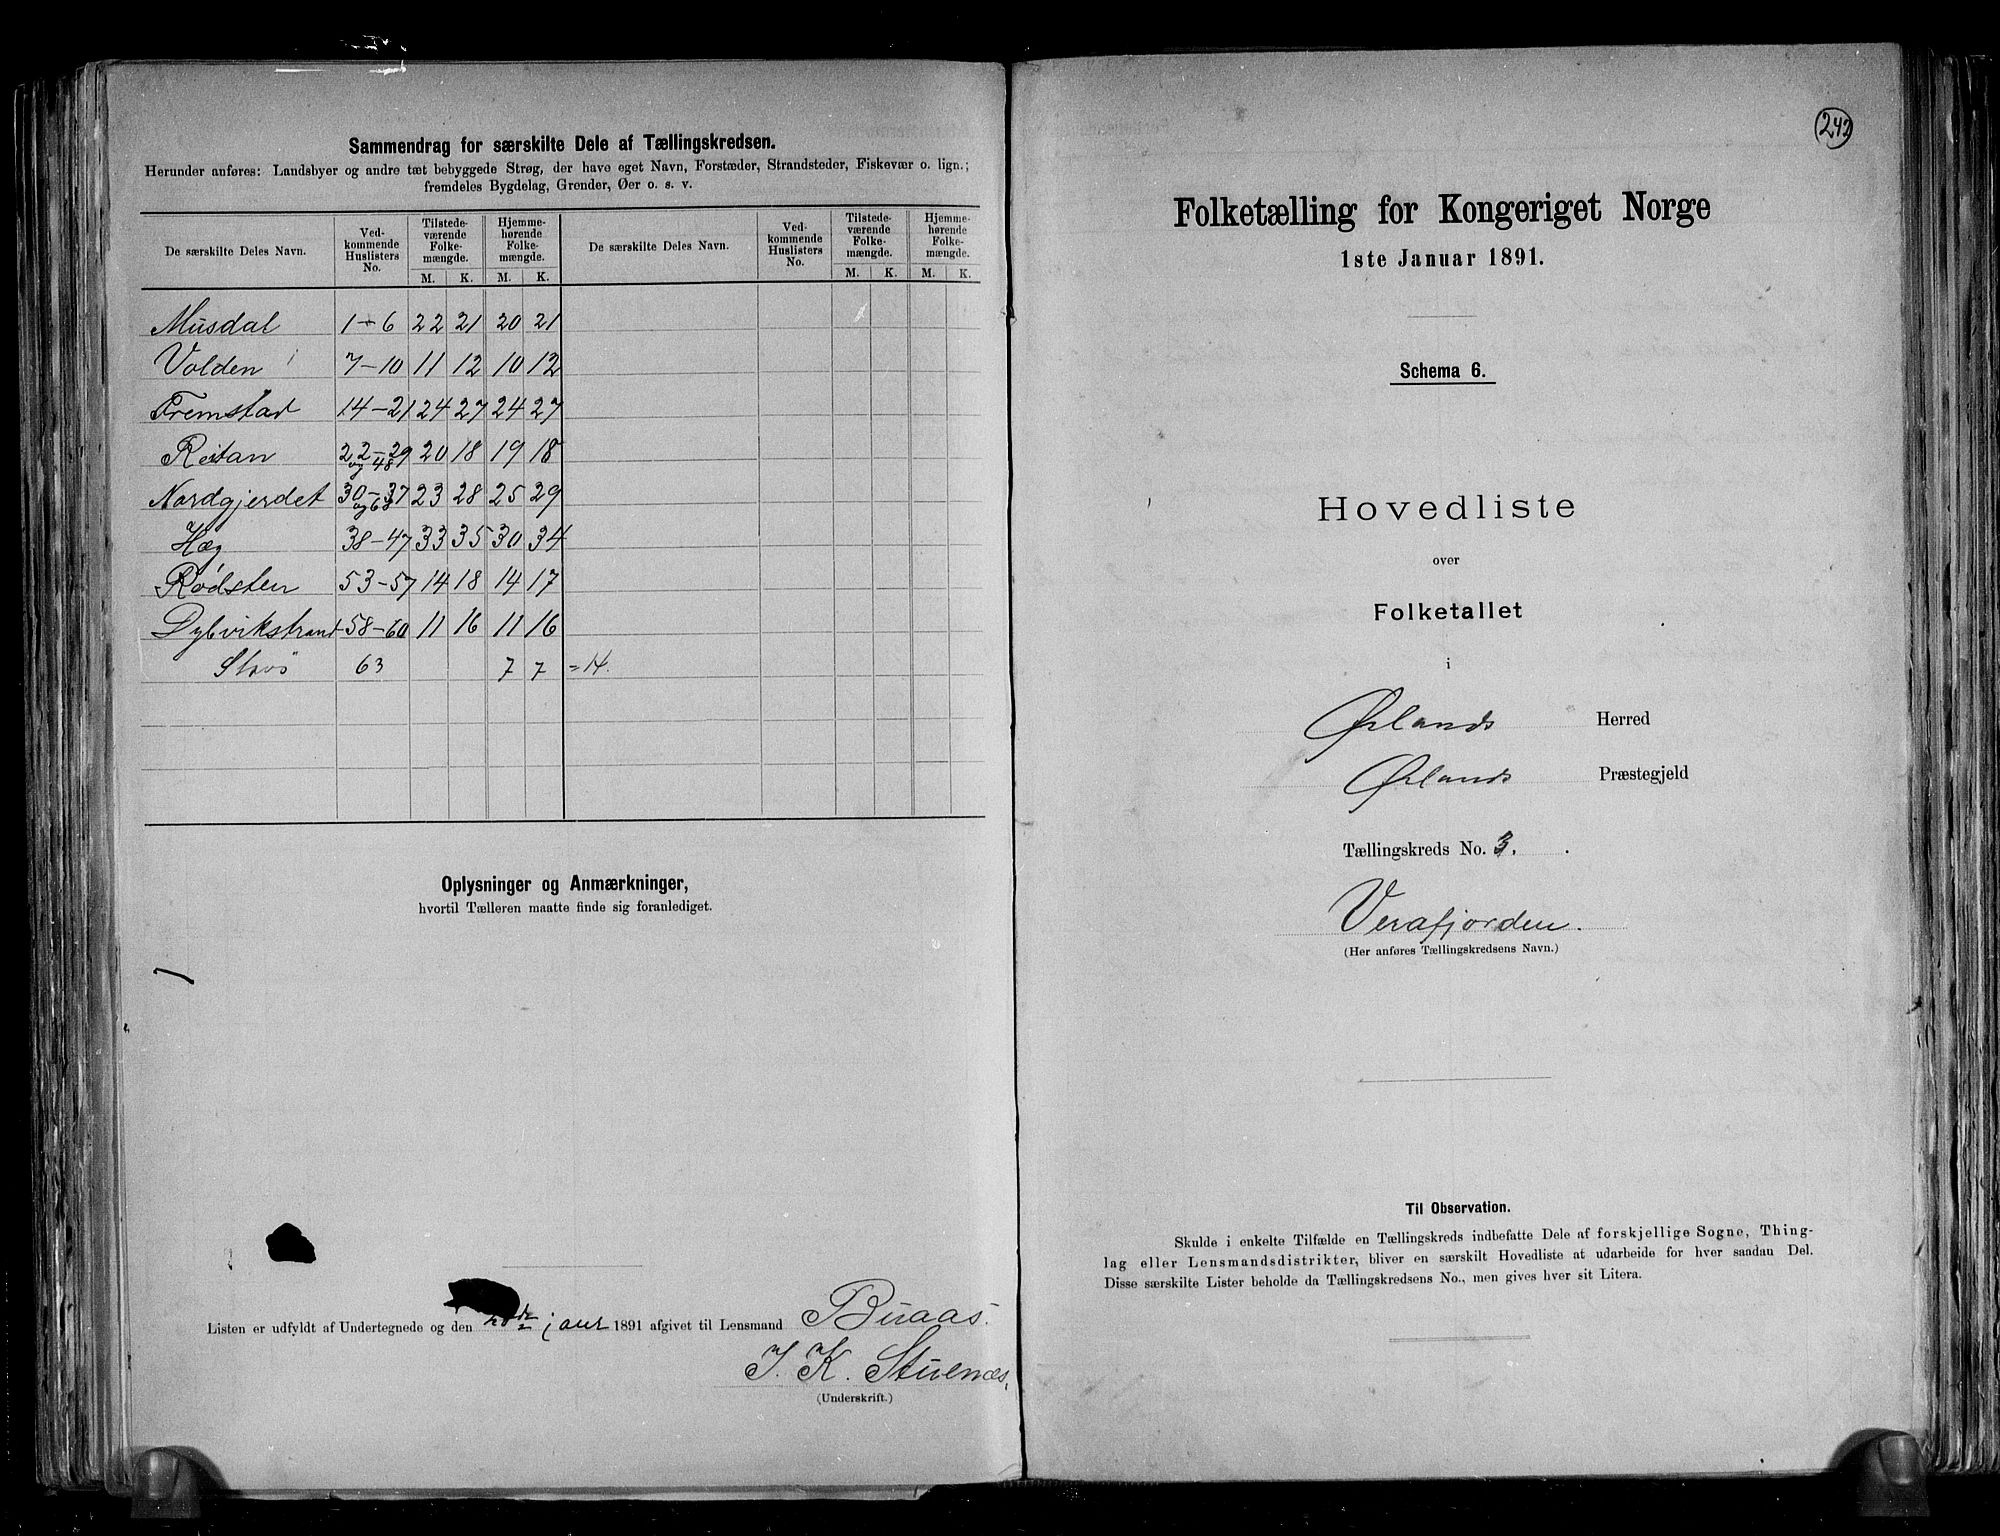 Sammendrag for særskilte Dele af Tællingskredsen.
Herunder anføres: Landsbyer og andre tæt bebyggede Strøg, der have eget Navn, Forstæder, Strandsteder, Fiskevær o. lign.;
fremdeles Bygdelag, Grender, Øer o. s. v.
De særskilte Deles Navn. Ved-kommende Huslisters No. Tilstede-værende Folke-mængde. Hjemme-hørende Folke-mængde. De særskilte Deles Navn. Ved-kommende Huslisters No. Tilstede-værende Folke-mængde. Hjemme-hørende Folke-mængde.
M. K. M. K. M. K. M. K.
Musdal 1-6 22 21 20 21
Volden 7-10 11 12 10 12
Fremstad 14-21 24 27 24 27
Reitan 22-29 og 48 20 18 19 18
Nordgjerdet 30-37 og 68 23 28 25 29
Hæg 38-47 33 35 30 34
Rødsten 53-57 14 18 14 17
Dybvikstrand 58-60 11 16 11 16
63 7 7 = 14.
Oplysninger og Anmærkninger,
hvortil Tælleren maatte finde sig foranlediget.
Listen er udfyldt af Undertegnede og den januar 1891 afgivet til Lensmand Buaas.
J. K. Stuenæs,
(Underskrift.)
242
Folketælling for Kongeriget Norge
1ste Januar 1891.
Schema 6.
Hovedliste
over
Folketallet
i
Ørlands Herred
Ørlands Præstegjeld
Tællingskreds No. 3.
Verafjorden.
(Her anføres Tællingskredsens Navn.)
Til Observation.
Skulde i enkelte Tilfælde en Tællingskreds indbefatte Dele af forskjellige Sogne, Thing-
lag eller Lensmandsdistrikter, bliver en særskilt Hovedliste at udarbeide for hver saadan Del.
Disse særskilte Lister beholde da Tællingskredsens No., men gives hver sit Litera.